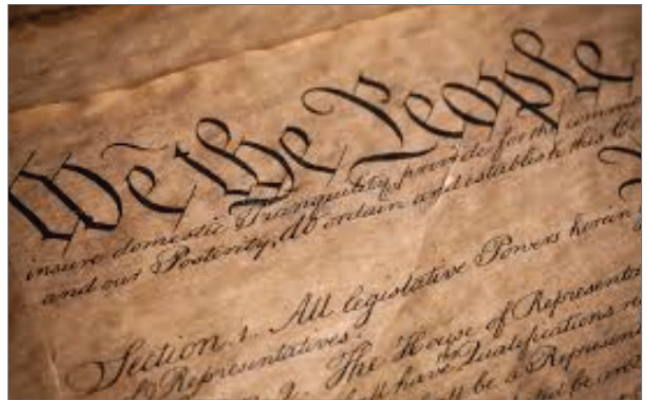 We the People
insure domestic Tranquility, provide for the common
and our Posterity, do ordain and establish this
Section. 1. All legislative Powers herein
of Representatives.
The House of Representa
shall have Qualifications re
shall be a Represen